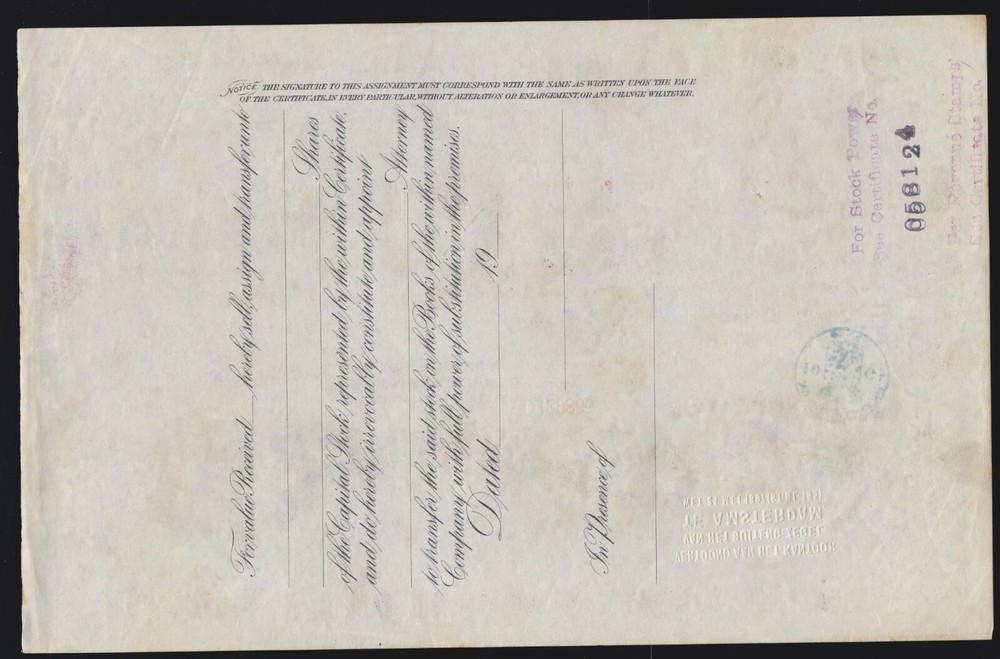 NOTICE. THE SIGNATURE TO THIS ASSIGNMENT MUST CORRESPOND WITH THE NAME AS WRITTEN UPON THE FACE
OF THE CERTIFICATE, IN EVERY PARTICULAR, WITHOUT ALTERATION OR ENLARGEMENT, OR ANY CHANGE WHATEVER.
For value Received hereby sell, assign and transfer unto
Shares
of the Capital Stock represented by the within Certificate,
and do hereby irrevocably constitute and appoint
Attorney
to transfer the said stock on the Books of the within named
Company with full power of substitution in the premises.
Dated 19
In Presence of
For Stock Power
See Certificate No.
058124
For Revenue Stamps
See Certificate No.
VERTOOND AAN HET KANTOOR
VAN HET BUITENL. ZEGEL
TE AMSTERDAM